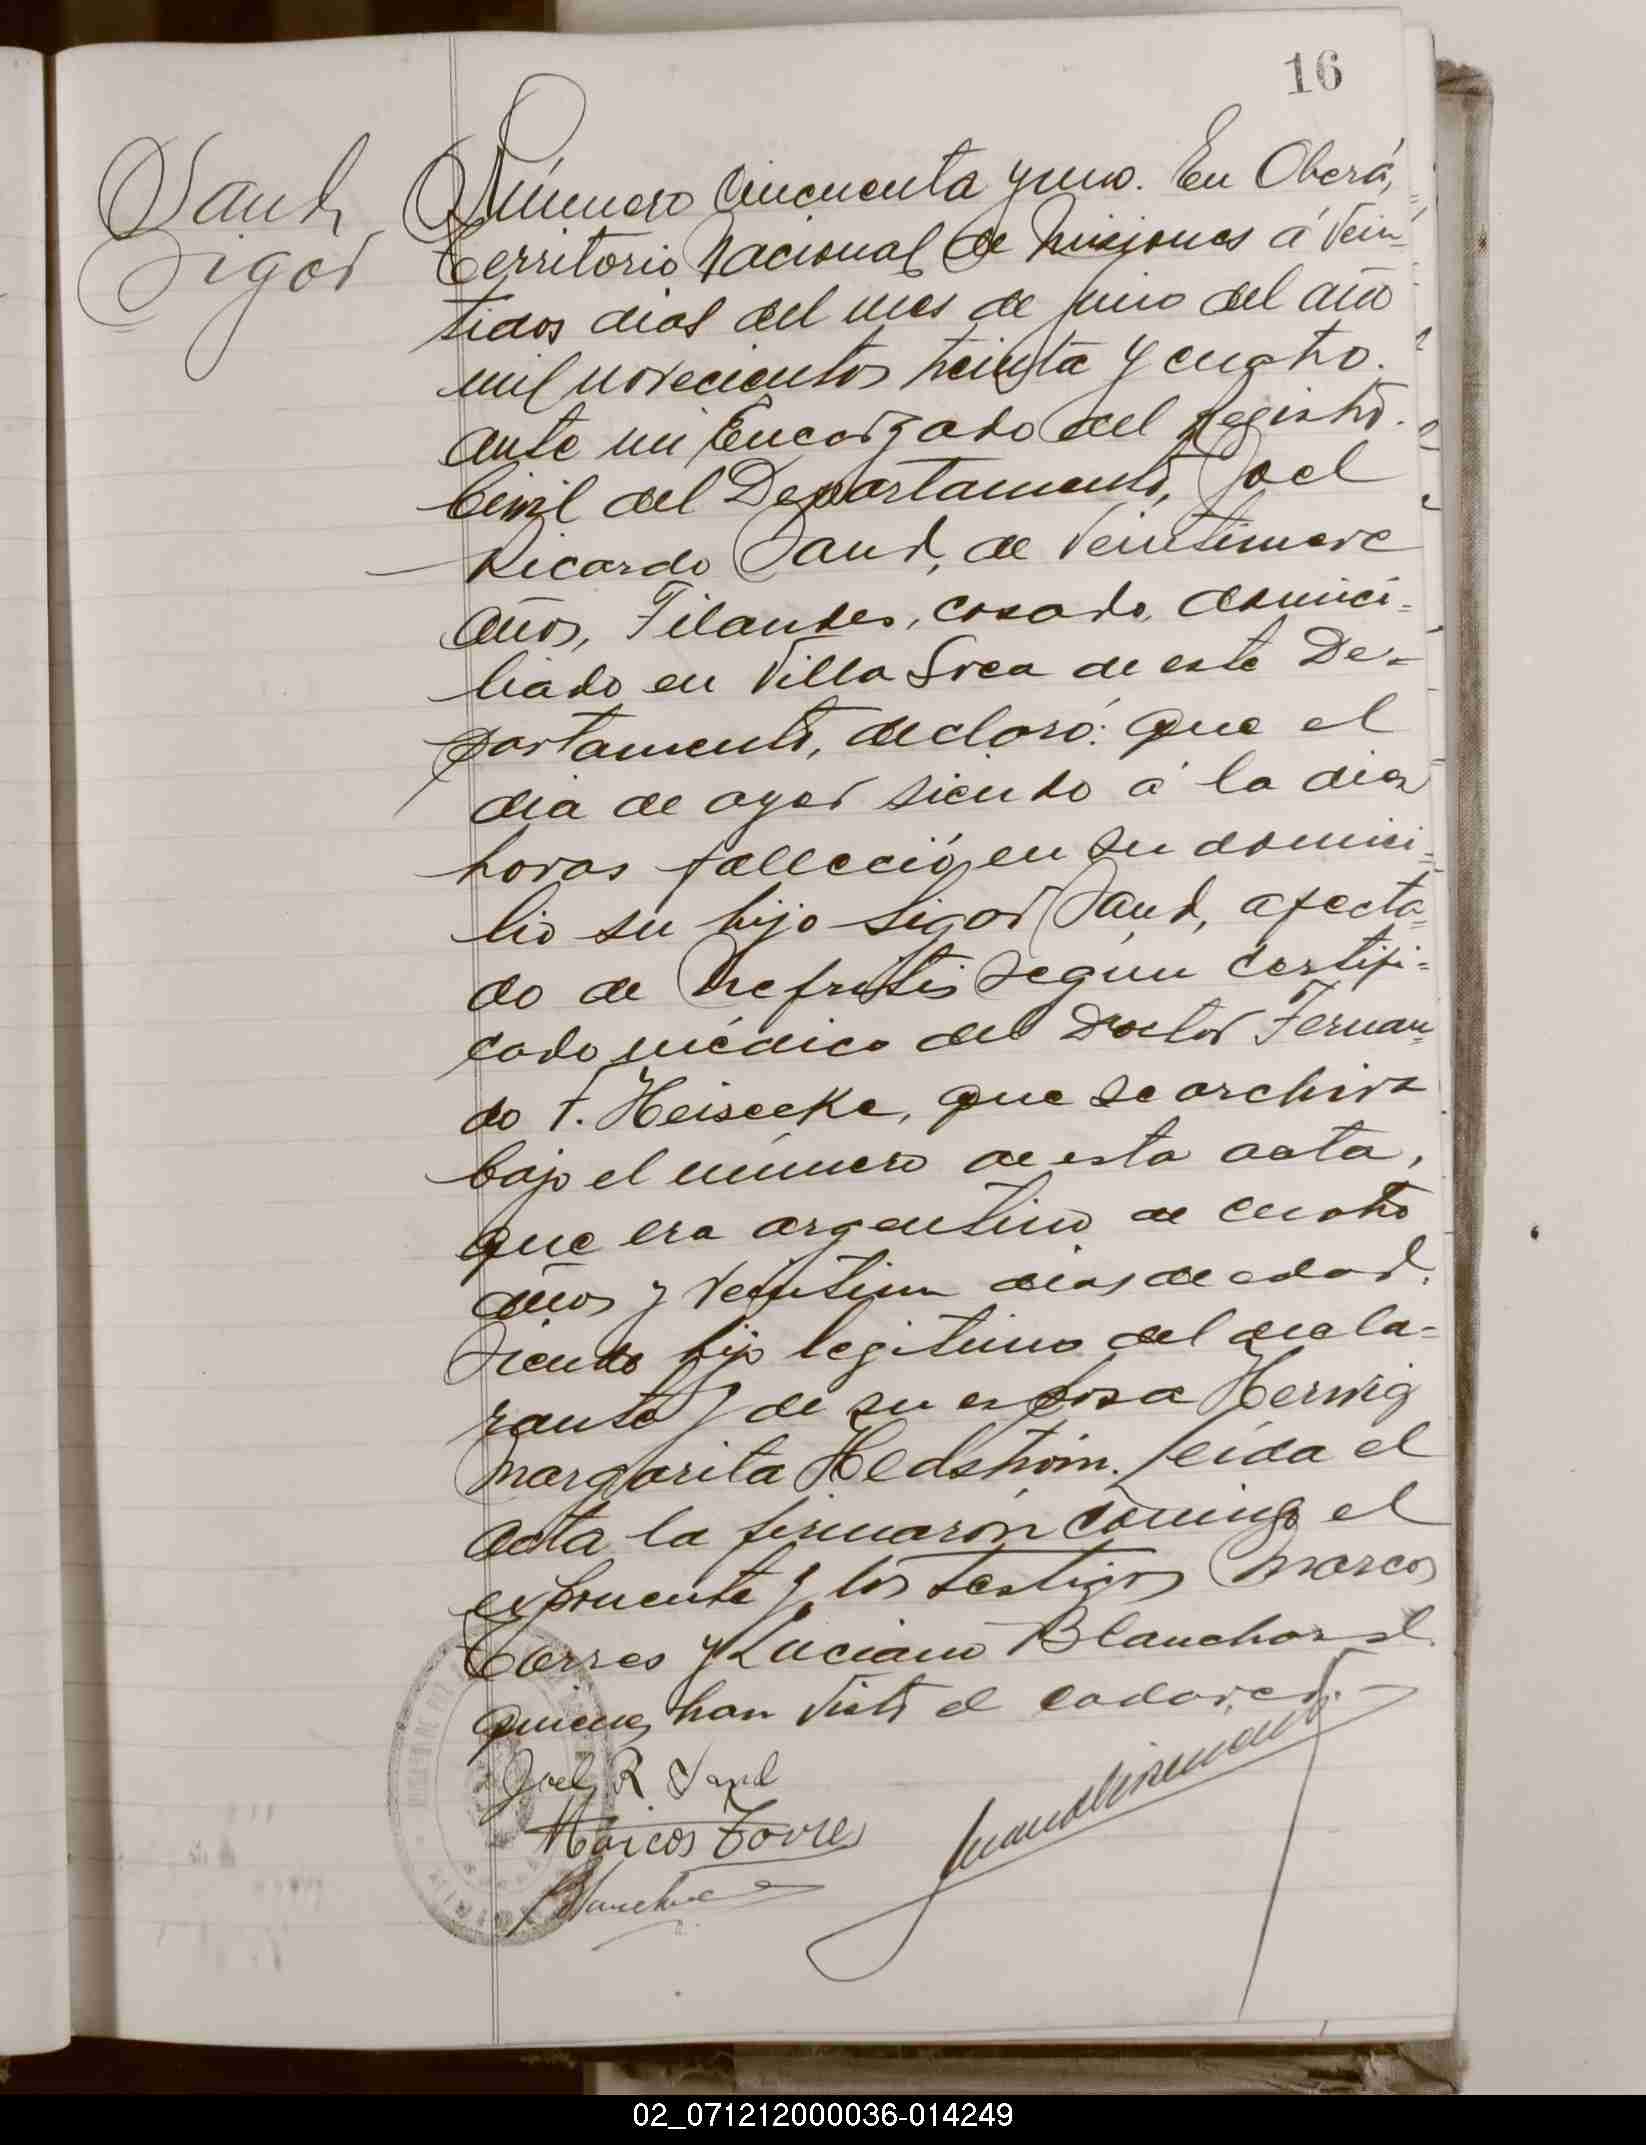 16
Sand
Sigor
Número Cincuenta y uno. En Oberá,
territorio Nacional de Misiones á vein-
tidos dias del mes de junio del año
mil novecientos treinta y cuatro.
ante mi Encargado del Registro
Civil del Departamento, Joel
Ricardo Sand, de veintinueve
años, Filandes, casado, domici-
liado en Villa Svea de este De-
partamento, declaró: que el
dia de ayer siendo á la diez
horas falleció en su domici-
lio su hijo Sigor Sand, afecta-
do de Nefritis según certifi-
cado médico del Doctor Fernan-
do F. Heisecke, que se archiva
bajo el número de esta acta,
que era argentino de cuatro
años y veintiun dias de edad.
Siendo hijo legitimo del decla-
rante y de su esposa Herwig
Margarita Hedström. Leida el
acta la firmarón conmigo el
exponente y los testigos Marcos
Torres y Luciano Blanchard
quienes han visto el cadaver.
Joel R Sand
Marcos Torres
02_071212000036-014249